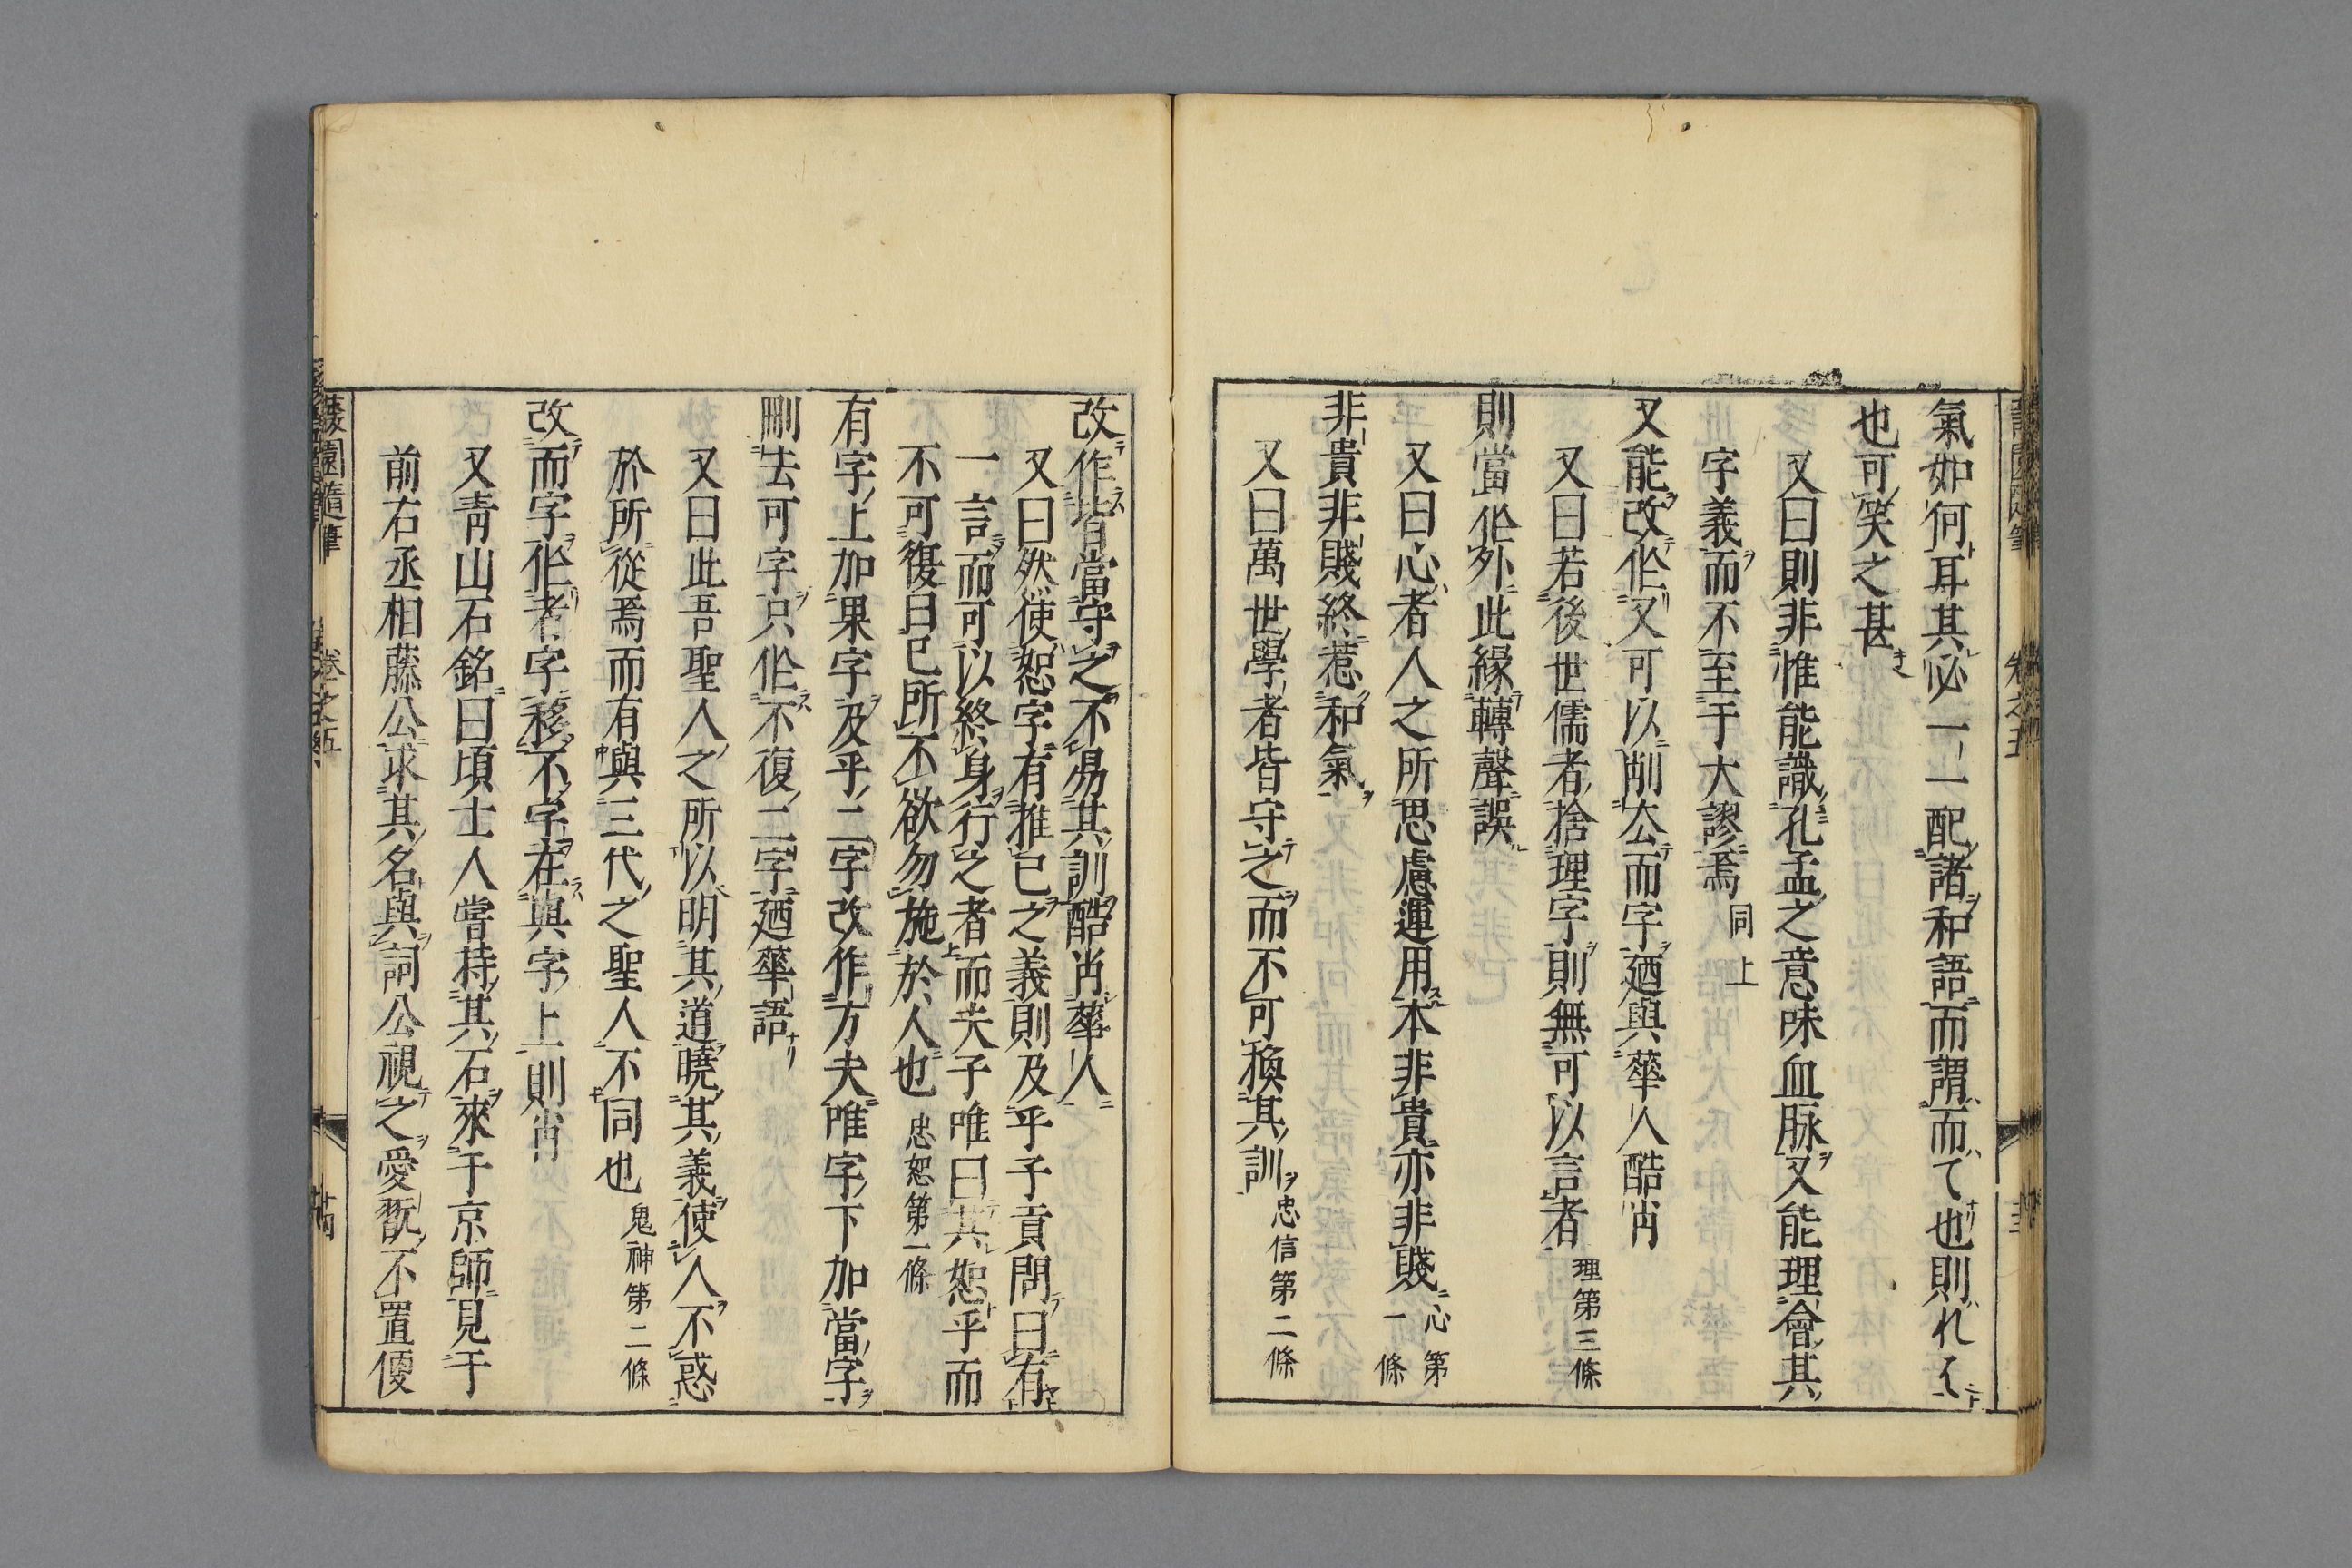 氣如何耳其必一一配諸和語而謂而て也則れく
也可笑之甚
又曰則非惟能識孔孟之意味血脉又能理會其
字義而不至于大謬焉同上
又能改作又可以削厺而字廼與華人酷肖
又曰若後世儒者捨理字則無可以言者理第三條
則當作外此緣轉聲誤
又曰心者人之所思慮運用本非貴亦非賤心第一條
非貴非賤終惹和氣
又曰萬世學者皆守之而不可換其訓忠信第二條
改作皆當守之不易其訓酷肖華人
又曰然使恕字有推己之義則及乎子貢問曰有
一言而可以終身行之者而夫子唯曰其恕乎而
不可復曰己所不欲勿施於人也忠恕第一條
有字上加果字及乎二字改作方夫唯字下加當字
刪去可字只作不復二字廼華語
又曰此吾聖人之所以明其道曉其義使人不惑
於所從焉而有與三代之聖人不同也鬼神第二條
改而字作者字移不字在與字上則肖
又靑山石銘曰頃士人嘗持其石來于京師見于
前右丞相藤公求其名與詞公視之愛翫不置便
蘐園隨筆 卷之五